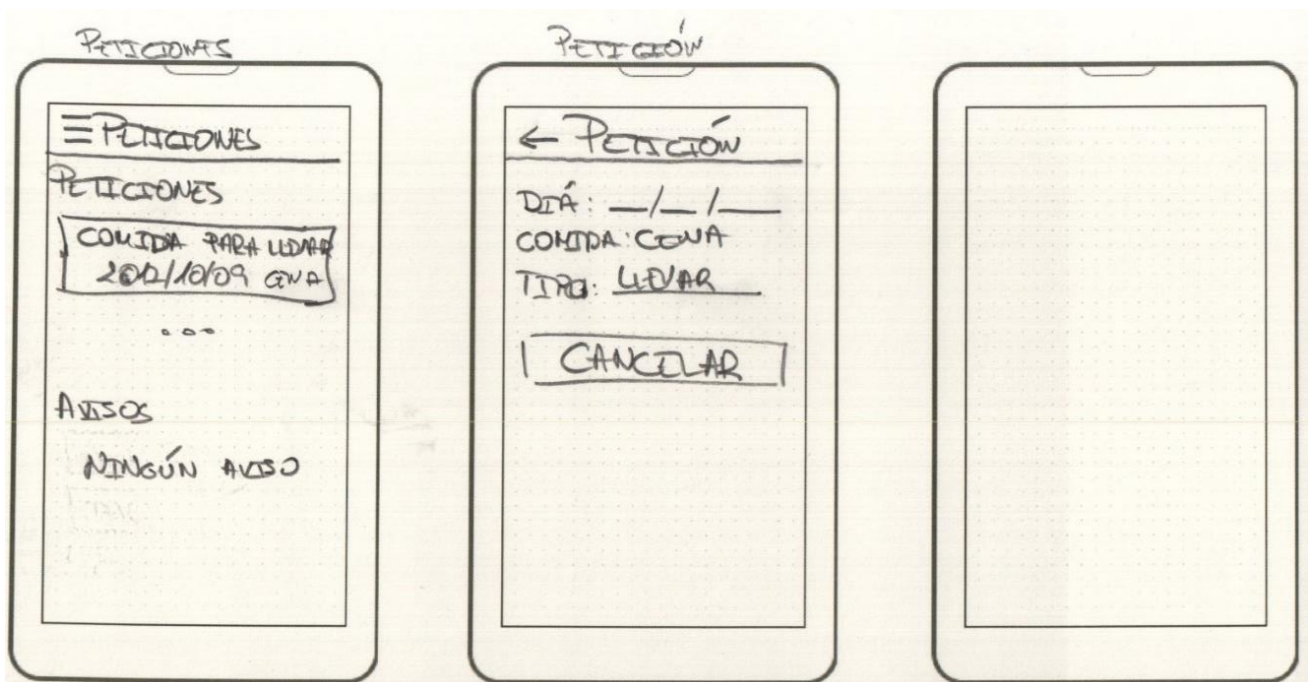 PETICIONES
≡ PETICIONES
PETICIONES
COMIDA PARA LLEVAR
2012/10/09 CENA
...
AVISOS
NINGÚN AVISO
PETICIÓN
← PETICIÓN
DIÁ: __/__/____
COMIDA: CENA
TIPO: LLEVAR
CANCELAR